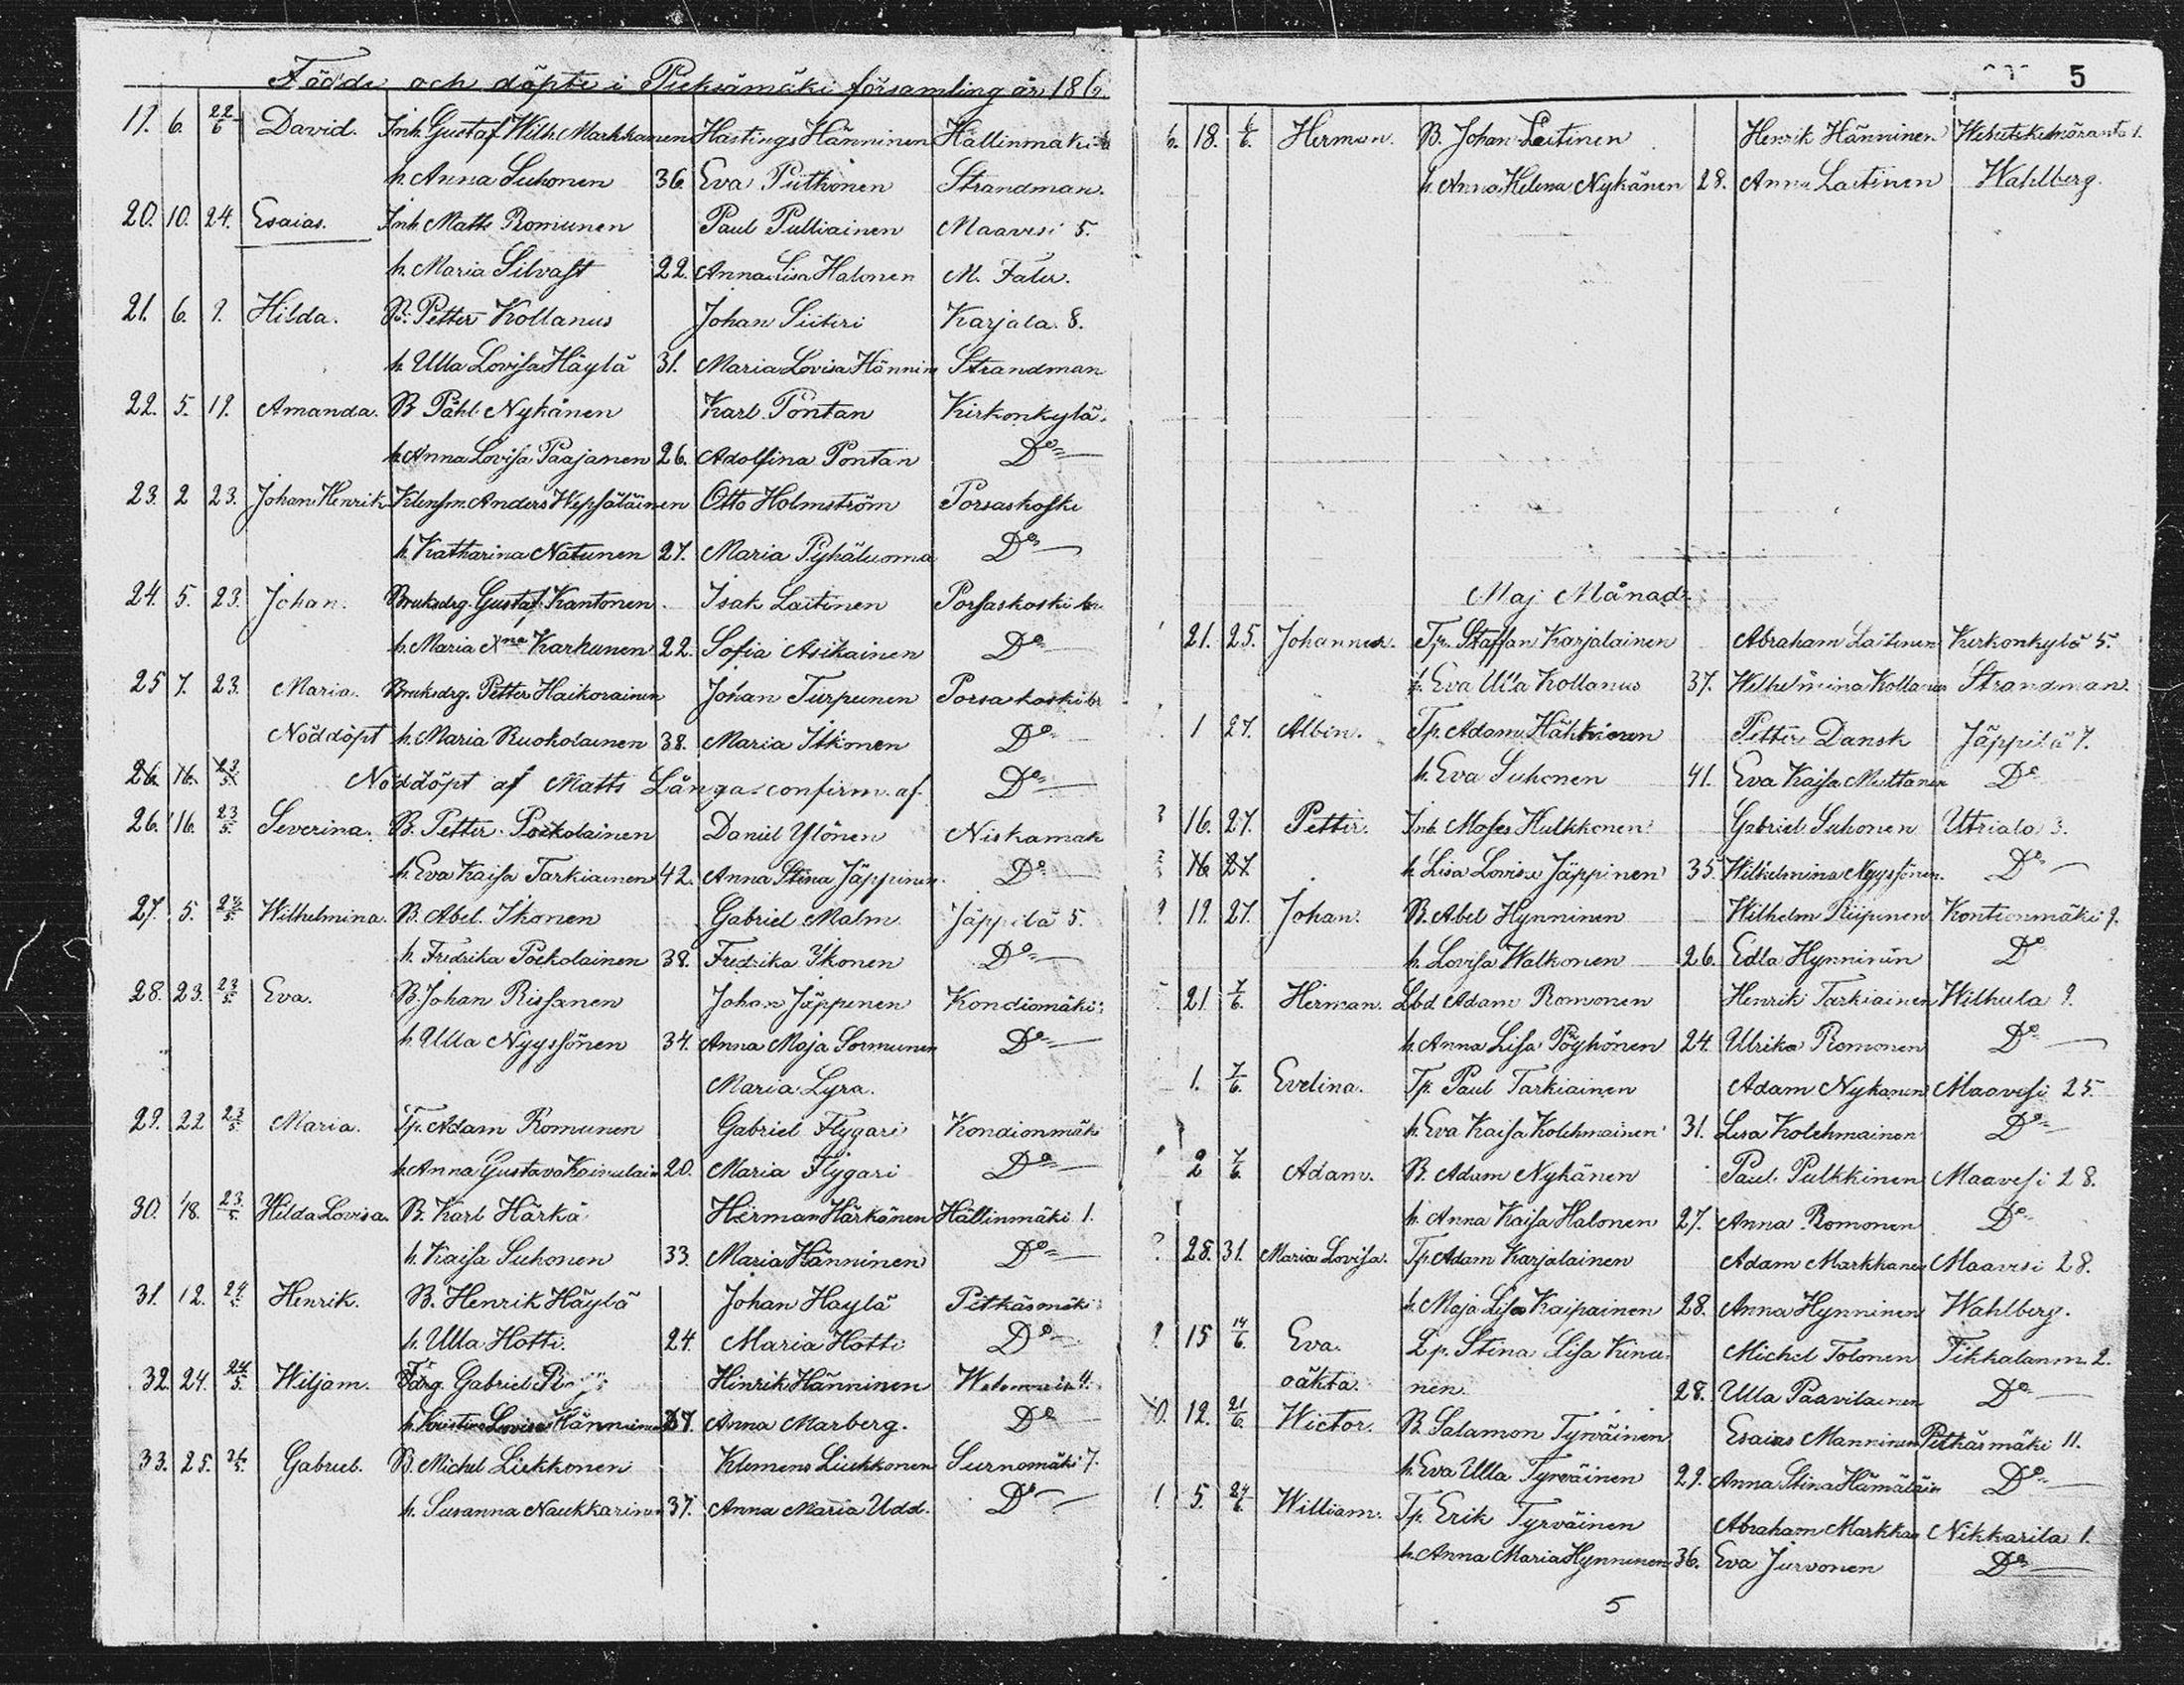 Födde och döpte i Pieksämäki församling år 186
19. 6. 22/6 David. Inh. Gustaf Wilh. Markkanen Hastings Hänninen Hällinmäki
h. Anna Suhonen 36. Eva Putkonen Strandman.
20. 10. 24. Esaias. Inh. Matts Romunen Paul Pulliainen Maavesi 5.
h. Maria Silvast 22. Anna Lisa Halonen M. Faler.
21. 6. 9. Hilda. B. Petter Kollanus Johan Siiteri Karjala 8.
h. Ulla Lovisa Häylä 31. Maria Lovisa Hännin Strandman
22. 5. 19. Amanda. B. Påhl Nykänen Karl Pontan Kirkonkylä.
h. Anna Lovisa Paajanen 26. Adolfina Pontan Do
23. 2 23. Johan Henrik Klensm. Anders Wepsäläinen Otto Holmström Porsaskoski
h. Katharina Natunen 27. Maria Pyhäluoma Do
24. 5. 23. Johan. Bruksdrg. Gustaf Kantonen. Isak Laitinen Porsaskoski br
h. Maria Xna Karhunen 22. Sofia Asikainen Do
25 7. 23. Maria. Bruksdrg. Petter Haikorainen Johan Turpunen Porsakoski br
Nöddöpt h. Maria Ruokolainen 38. Maria Itkonen Do
26. 16. 23/5. Nöddöpt af Matts Långa confirm. af. Do
26. 16. 23/5. Severina. B. Petter Poikolainen Daniel Ylönen Niskamäk
h. Eva Kaisa Tarkiainen 42. Anna Stina Jäppinen. Do
27. 5. 23/5. Wilhelmina. B. Abel Ikonen Gabriel Malm Jäppilä 5.
h. Fredrika Poikolainen 38. Fredrika Ikonen Do
28. 23. 23/5. Eva. B. Johan Rissanen Johan Jäppinen Kondiomäki
h. Ulla Nyyssönen 34. Anna Maja Sormunen Do
Maria Lyra.
29. 22 23/5. Maria. Tp. Adam Romunen Gabriel Flygari Kondionmäki
h. Anna Gustava Kainulain 20. Maria Flygari Do
30. 18. 23/5. Hilda Lovisa. B. Karl Härkä Herman Härkönen Hällinmäki 1.
h. Kaisa Suhonen 33. Maria Hänninen Do
31. 12. 24/5. Henrik. B. Henrik Häylä Johan Haylä Pitkäsmäki
h. Ulla Hotti. 24. Maria Hotti Do
32. 24. 24/5. Wiljam. Gabriel Hinrik Hänninen 4.
h. Lovisa Hänninen 27. Anna Marberg. Do
33. 25. Gabriel. B. Michel Liukkonen Klemens Liukkonen Surnomäki 7.
h. Susanna Naukkarinen 37. Anna Maria Udd. Do
5
6. 18. 6/6. Herman. B. Johan Laitinen Henrik Hänninen 1.
h. Anna Helena Nykänen 28. Anna Laitinen Wahlberg.
Maj Månad.
21. 25. Johannes. Tp. Staffan Karjalainen Abraham Laitinen Kirkonkylä 5.
h. Eva Ulla Kollanus 37. Wilhelmina Kollanus Strandman.
1 27. Albin. Tp. Adam Hähkiönen Petter Dansk Jäppilä 7.
h. Eva Suhonen 41. Eva Kaisa Muttanen Do
16. 27. Petter. Inh. Moses Hulkkonen Gabriel Suhonen Utriala 3.
16 27 h. Lisa Lovisa Jäppinen 35. Wilhelmina Nyyssönen. Do
19. 27. Johan. B. Abel Hynninen Wilhelm Riipinen Kontionmäki 9.
h. Lovisa Walkonen 26. Edla Hynninen Do
21 7/6. Herman. Lbd Adam Romonen Henrik Tarkiainen Wilhula 9.
h. Anna Lisa Pöyhönen 24. Ulrika Romonen Do
1. 7/6. Evelina. Tp. Paul Tarkiainen Adam Nykanen Maavesi 25.
h. Eva Kaisa Kolehmainen 31. Lisa Kolehmainen Do
2 7/6. Adam. B. Adam Nykänen Paul Pulkkinen Maavesi 28.
h. Anna Kaisa Halonen 27. Anna Romonen Do
28. 31. Maria Lovisa. Tp. Adam Karjalainen Adam Markkanen Maavesi 28.
h. Maja Lisa Kaipainen 28. Anna Hynninen Wahlberg.
15 14/6. Eva. Qp. Stina Lisa Kinu- Michel Tolonen Tikkalanm. 2.
oäkta. nen 28. Ulla Paavilainen Do
12. 21/6. Wictor. B. Salamon Tyrväinen Esaias Manninen Pitkäsmäki 11.
h. Eva Ulla Tyrväinen 29. Anna Stina Hämäläin Do
5. 24/6. William. Tp. Erik Tyrväinen Abraham Markkan Nikkarila 1.
h. Anna Maria Hynninen 36. Eva Jurvonen Do
5